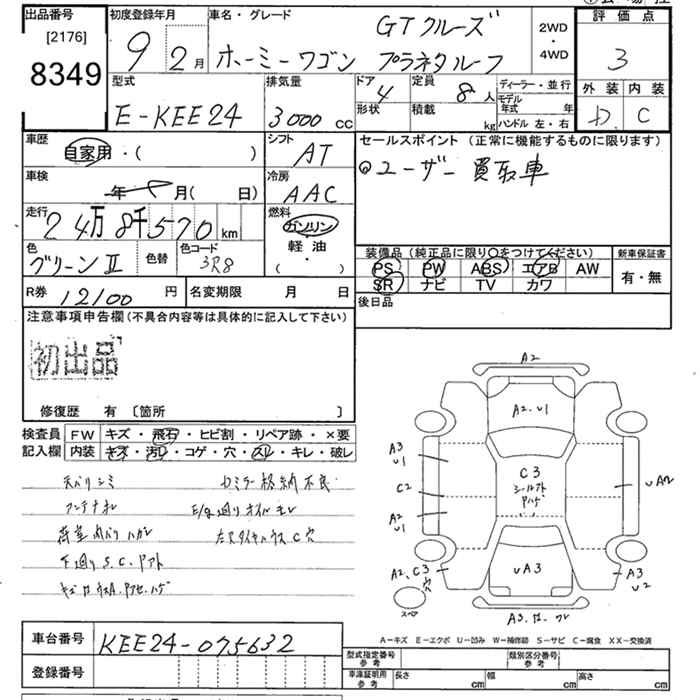 出品番号
[2176]
8349
初度登録年月
9 2月
車名・グレード
GTクルーズ
ホーミーワゴン プラネタルーフ
2WD
・
4WD
評価点
3
外装 内装
D C
型式
E-KEE24
排気量
3000 cc
ドア 4
定員 8人
形状
積載 kg
ディーラー・並行
モデル年式 年
ハンドル 左・右
車歴
自家用・( )
シフト AT
セールスポイント (正常に機能するものに限ります)
ユーザー買取車
車検
年 月( 日)
冷房 AAC
走行
24万8千570 km
燃料
ガソリン
軽・油
( )
色
グリーンII
色替
色コード
3R8
装備品(純正品に限り○をつけてください)
PS PW ABS エアB AW
SR ナビ TV カワ
新車保証書
有・無
R券 12100 円
名変期限 月 日
後日品
注意事項申告欄(不具合内容等は具体的に記入して下さい)
初出品
修復歴 有 〔箇所 〕
検査員 記入欄
FW キズ・飛石・ヒビ割・リペア跡・×要
内装 キズ・汚レ・コゲ・穴・スレ・キレ・破レ
天バリシミ
アンテナ
荷室内バリハガレ
下廻りS.C.Pアト
E/g廻りオイルモレ
A2
A2.U1
A3
U1
C2
A2
U1
C3
シールアト
Pハゲ
UA2
UA3
A2.C3
穴
スペア
A3
U2
A-キズ E-エクボ U-凹み W-補修跡 S-サビ C-腐食 XX-交換済
車台番号
KEE24-075632
登録番号
型式指定番号 参考
類別区分番号 参考
車庫証明用 参考
長さ cm
幅 cm
高さ cm